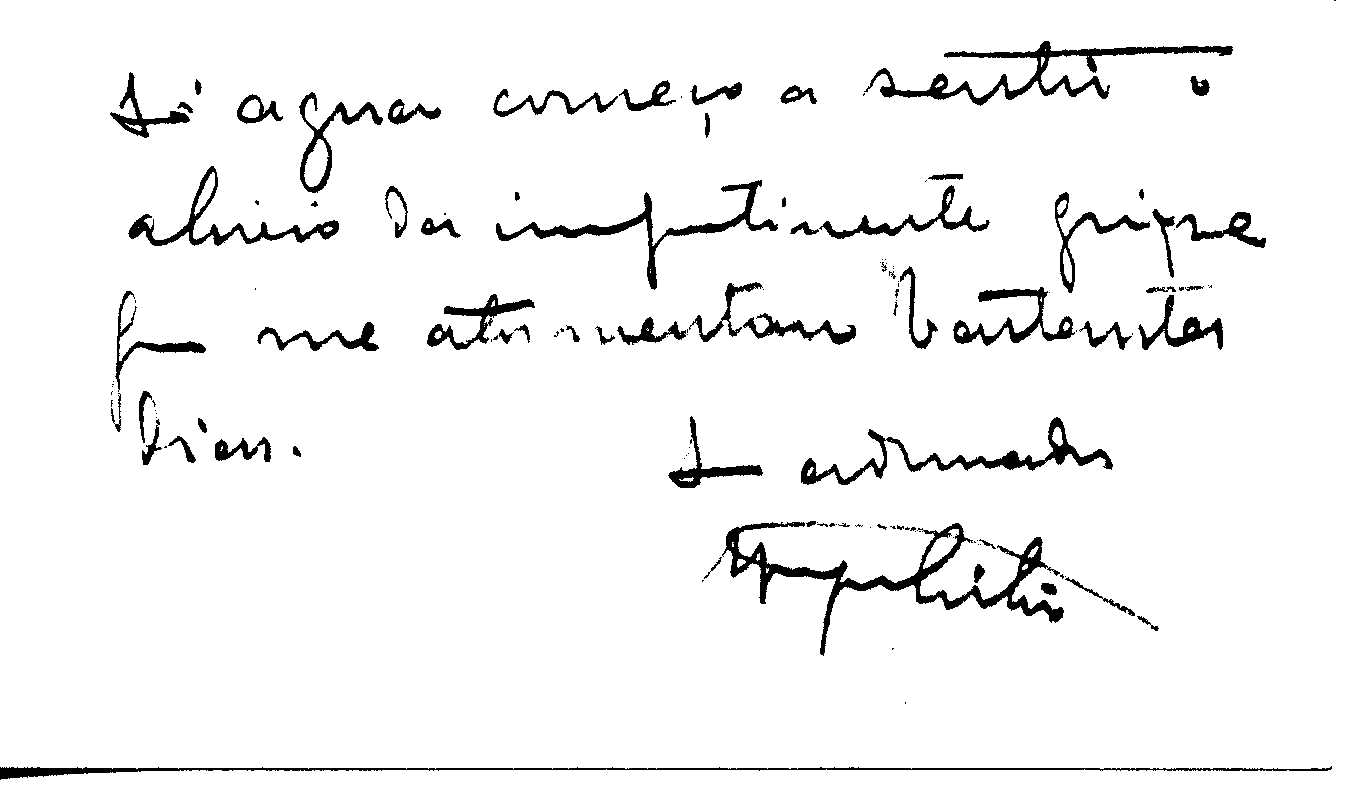 Só agora começo a sentir o
alivio da impertinente grippe
que me atormentou bastantes
dias.
Seu admrador
Hypolito